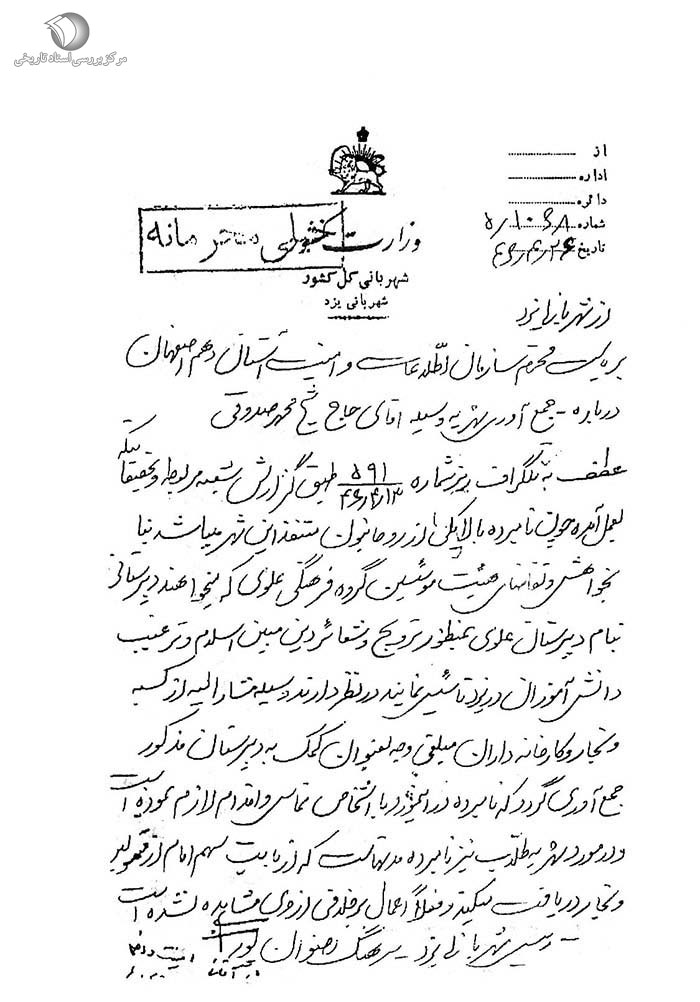 مرکز بررسی اسناد تاریخی
از
اداره
دائره
شماره ۵/۱۰۶۸
تاریخ ۴۶/۴/۲۶
وزارت کشور
محرمانه
شهربانی کل کشور
شهربانی یزد
از شهربانی یزد
بریاست محترم سازمان اطلاعات و امنیت استان دهم اصفهان
درباره - جمع آوری شهریه وسیله آقای حاج شیخ محمد صدوقی
عطف به تلگراف رمز شماره ۵۹۱ ۴۶/۴/۱۳ طبق گزارش شعبه مربوطه و تحقیقاتیکه
بعمل آمده چون نامبرده بالا یکی از روحانیون متنفذ این شهر میباشد بنا
بخواهش و تقاضای هیئت موسسین گروه فرهنگی علوی که میخواهند دبیرستانی
بنام دبیرستان علوی بمنظور ترویج و شعائر دین مبین اسلام و ترغیب
دانش آموزان در یزد تاسیس نمایند در نظر دارند وسیله مشارالیه از کسبه
و تجار و کارخانه داران مبلغی وجه بعنوان کمک به دبیرستان مذکور
جمع آوری گردد که نامبرده در این مورد با اشخاص تماس و اقدام لازم نموده است
و در مورد شهریه طلاب نیز نامبرده مدتهاست که از بابت سهم امام از
و تجار دریافت میکند و فعلاً اعمال برخلافی از وی مشاهده نشده است
رئیس شهربانی یزد - سرهنگ رضوان